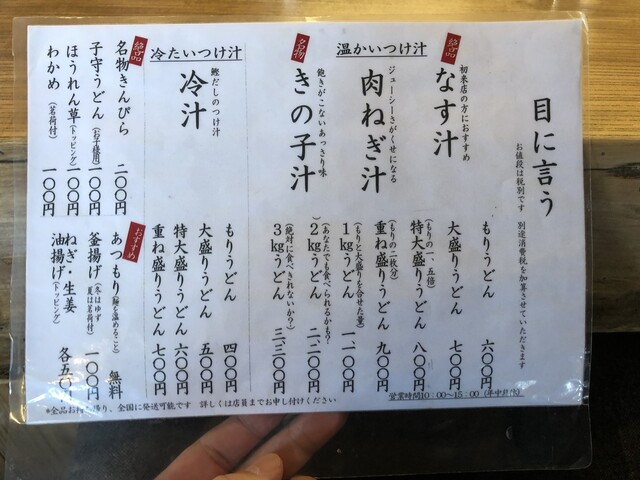 目に言う
お値段は税別です 別途消費税を加算させていただきます
温かいつけ汁
絶品
初来店の方におすすめ
なす汁
ジューシーさがくせになる
肉ねぎ汁
名物
飽きがこないあっさり味
きの子汁
もりうどん 六〇〇円
大盛りうどん 七〇〇円
特大盛りうどん 八〇〇円
(もりの一、五倍)
重ね盛りうどん 九〇〇円
(もりの二枚分)
1kgうどん 一、一〇〇円
(もりと大盛りを合せた量)
2kgうどん 二、二〇〇円
(あなたでも食べられるかも?)
3kgうどん 三、三〇〇円
(絶対に食べきれないか?)
冷たいつけ汁
鰹だしのつけ汁
冷汁
もりうどん 四〇〇円
大盛りうどん 五〇〇円
特大盛りうどん 六〇〇円
重ね盛りうどん 七〇〇円
絶品
名物きんぴら 二〇〇円
子守うどん(お子様用) 一〇〇円
ほうれん草(トッピング) 一〇〇円
わかめ(茗荷付) 一〇〇円
おすすめ
あつもり(麺を温めること) 無料
釜揚げ(冬はゆず 夏は茗荷付) 一〇〇円
ねぎ・生姜
油揚げ(トッピング) 各五〇円
営業時間10:00〜15:00
*全品お持ち帰り、全国に発送可能です 詳しくは店員までお申し付けください